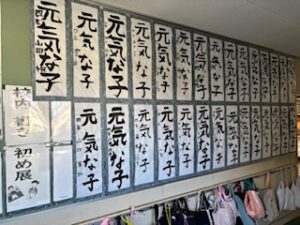 元気な子
元気な子
元気な子
元気な子
元気な子
元気な子
元気な子
元気な子
元気な子
元気な子
校内 書き
初め展
元気な子
元気な子
元気な子
元気な子
元気な子
元気な子
元気な子
元気な子
元気な子